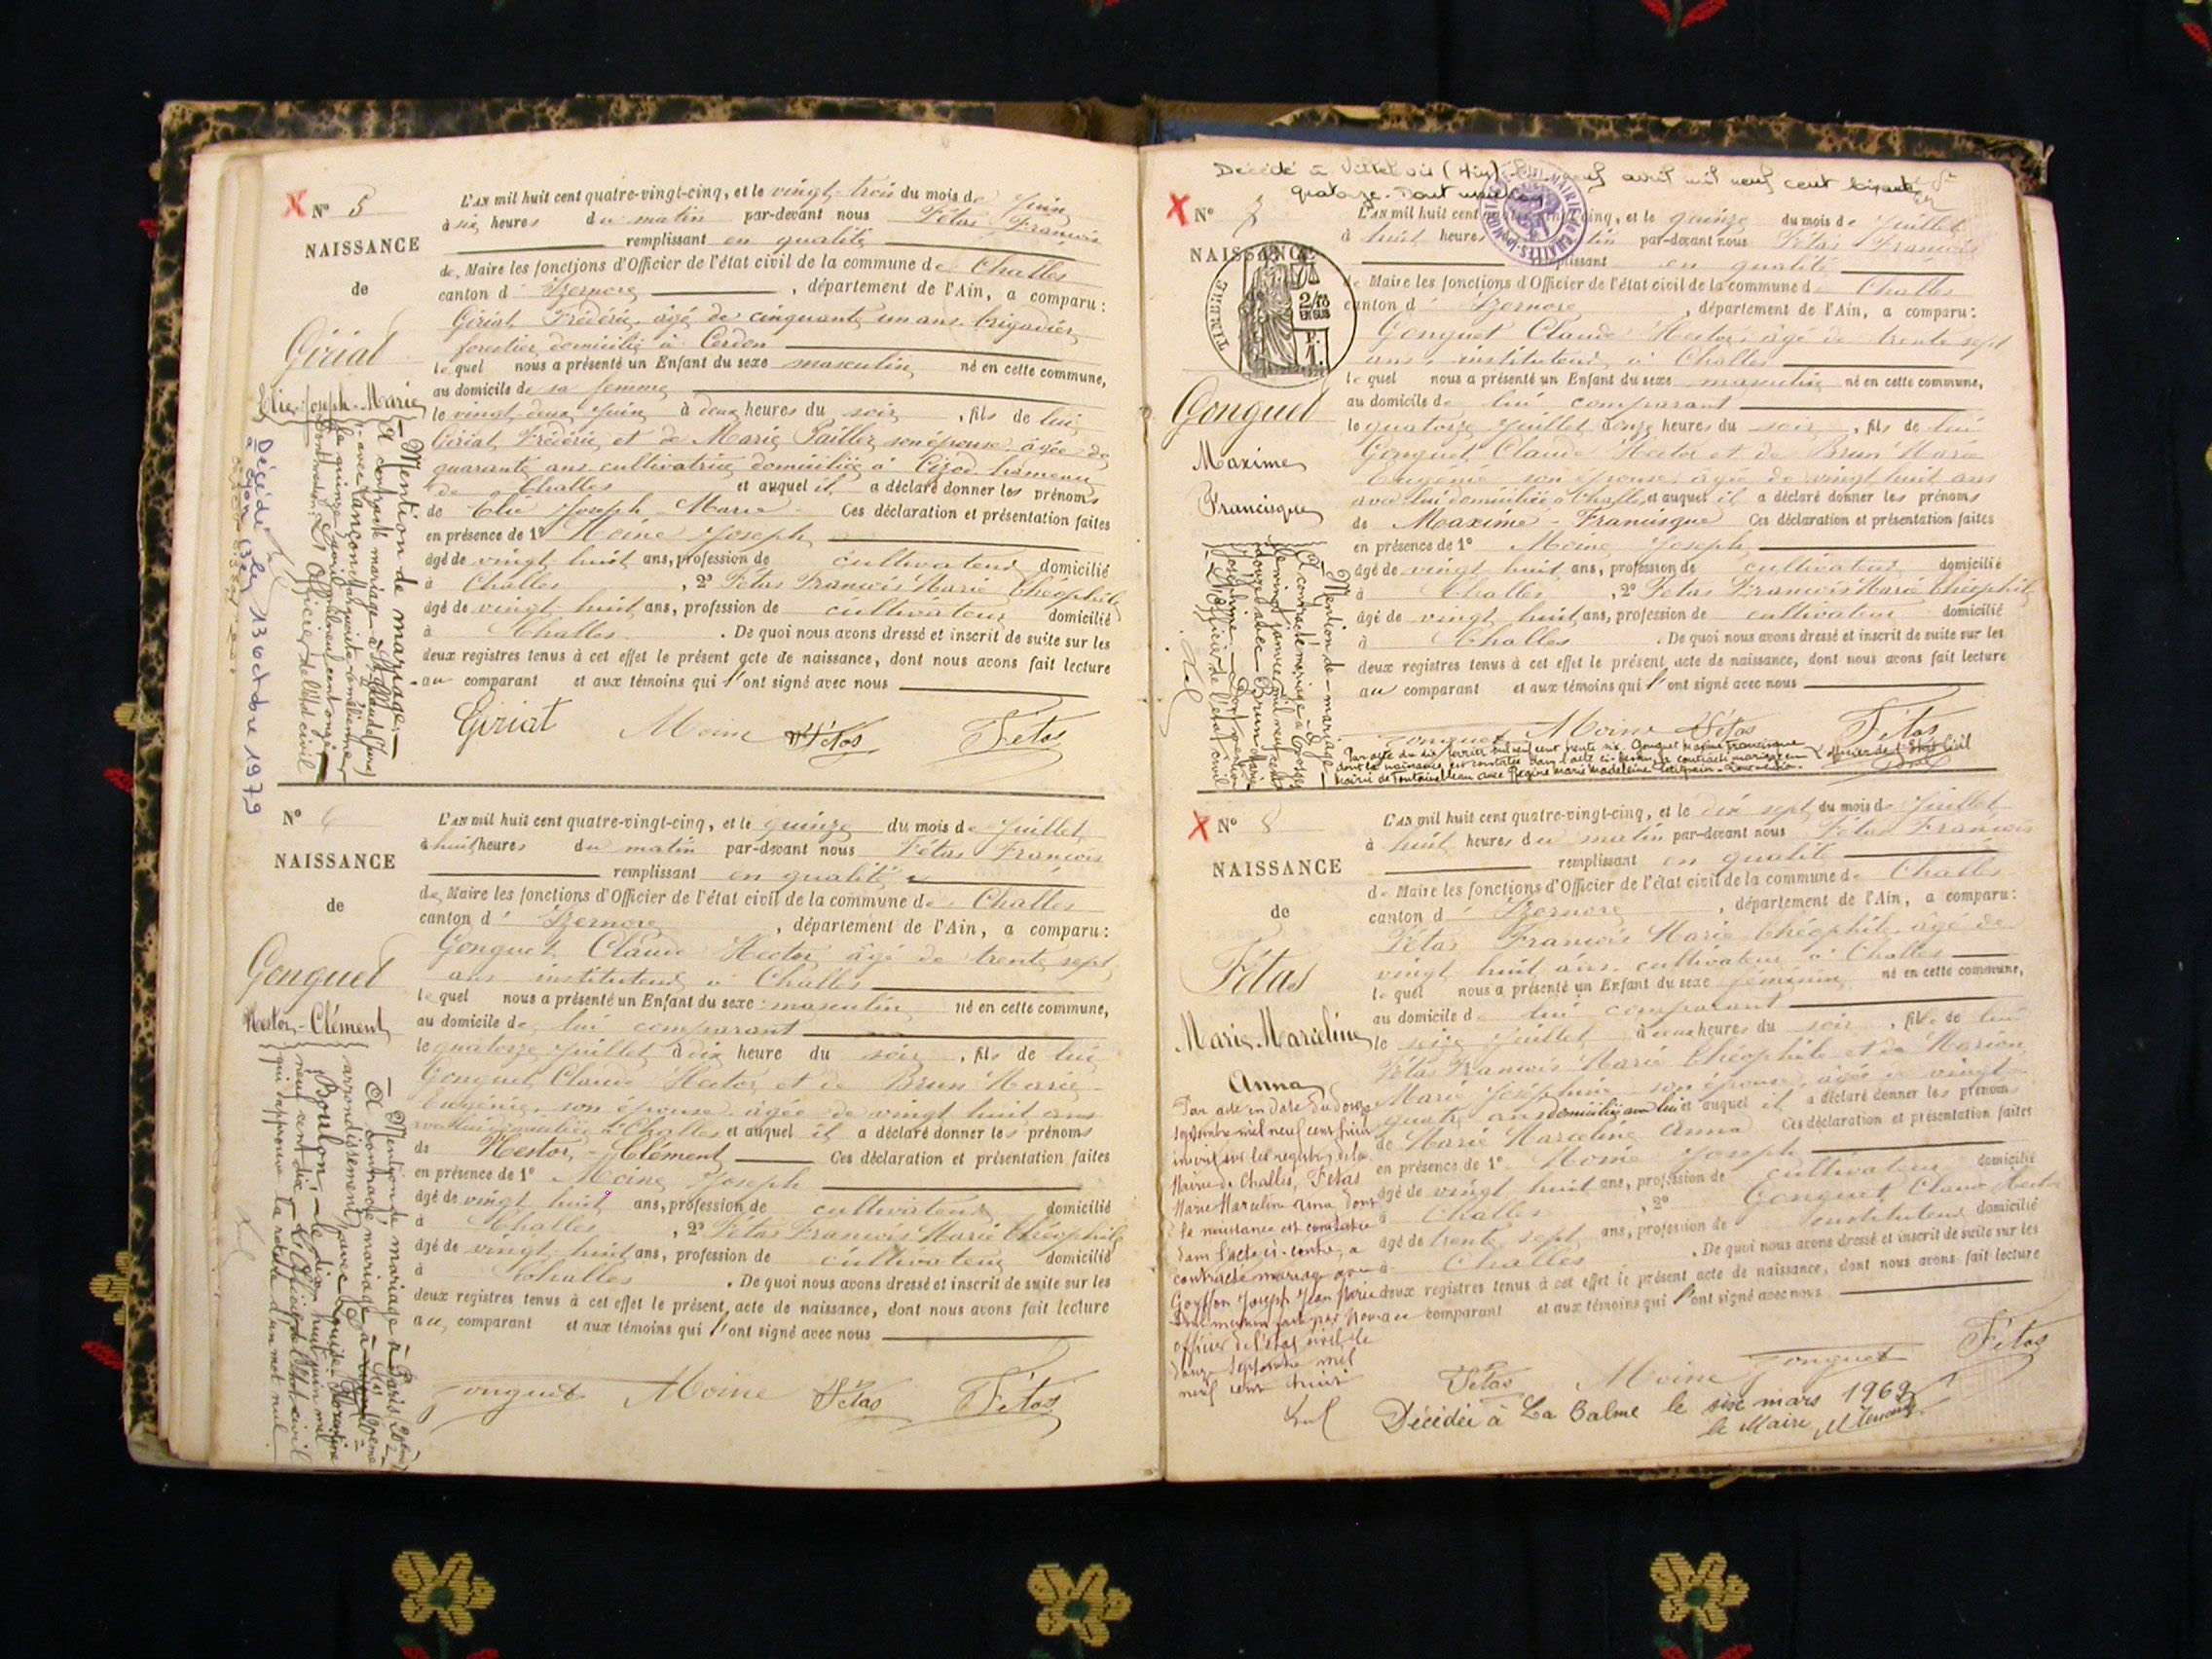 N° 5
NAISSANCE
de
Giriat
Elie-Joseph-Marie
L'AN mil huit cent quatre-vingt-cinq, et le vingt-trois du mois de Juin
à six heures du matin par-devant nous Fétas François
remplissant en qualité
de Maire les fonctions d'Officier de l'état civil de la commune de Challes
canton d' Izernore, département de l'Ain, a comparu:
Giriat Frédéric âgé de cinquante un ans brigadier
forestier domicilié à Cerdon
lequel nous a présenté un Enfant du sexe masculin né en cette commune,
au domicile de sa femme
le vingt deux Juin à deux heures du soir, fils de lui
Giriat Frédéric et de Marie Paillez son épouse âgée de
quarante ans cultivatrice domiciliée à hameau
de Challes et auquel il a déclaré donner les prénoms
de Elie Joseph-Marie Ces déclaration et présentation faites
en présence de 1° Moine Joseph
âgé de vingt huit ans, profession de cultivateur domicilié
à Challes, 2° Fétas François Marie Théophile
âgé de vingt huit ans, profession de cultivateur domicilié
à Challes. De quoi nous avons dressé et inscrit de suite sur les
deux registres tenus à cet effet le présent acte de naissance, dont nous avons fait lecture
au comparant et aux témoins qui l'ont signé avec nous
Giriat Moine Fétas Fétas
Mention de mariage
A contracté mariage à St Claude (Jura)
L'Officier de l'état civil
Décédé
à Lyon le 13 octobre 1979
N° 6
NAISSANCE
de
Gonguet
Hector-Clément
L'AN mil huit cent quatre-vingt-cinq, et le quinze du mois de Juillet
à huit heures du matin par-devant nous Fétas François
remplissant en qualité
de Maire les fonctions d'Officier de l'état civil de la commune de Challes
canton d' Izernore, département de l'Ain, a comparu:
Gonguet Claude Hector âgé de trente sept
ans instituteur à Challes
lequel nous a présenté un Enfant du sexe masculin né en cette commune,
au domicile de lui comparant
le quatorze Juillet à dix heure du soir, fils de lui
Gonguet Claude Hector et de Brun Marie
Eugénie son épouse âgée de vingt huit ans
avec lui domiciliée à Challes et auquel il a déclaré donner les prénoms
de Hector-Clément Ces déclaration et présentation faites
en présence de 1° Moine Joseph
âgé de vingt huit ans, profession de cultivateur domicilié
à Challes, 2° Fétas François Marie Théophile
âgé de vingt huit ans, profession de cultivateur domicilié
à Challes. De quoi nous avons dressé et inscrit de suite sur les
deux registres tenus à cet effet le présent acte de naissance, dont nous avons fait lecture
au comparant et aux témoins qui l'ont signé avec nous
Gonguet Moine Fétas Fétas
Mention de mariage à Paris 20ème
A contracté mariage à
arrondissement avec Louise Florentine
Boulon, le dix huit juin mil
neuf cent dix L'Officier de l'état civil
qui approuve la rature d'un mot nul
Décédé à (Ain) avril mil neuf cent soixante
quatorze.
N° 7
NAISSANCE
TIMBRE
Gonguet
Maxime
Francisque
L'AN mil huit cent quatre-vingt-cinq, et le quinze du mois de Juillet
à huit heures du matin par-devant nous Fétas François
remplissant en qualité
de Maire les fonctions d'Officier de l'état civil de la commune de Challes
canton d' Izernore, département de l'Ain, a comparu:
Gonguet Claude Hector âgé de trente sept
ans instituteur à Challes
lequel nous a présenté un Enfant du sexe masculin né en cette commune,
au domicile de lui comparant
le quatorze Juillet à onze heures du soir, fils de lui
Gonguet Claude Hector et de Brun Marie
Eugénie son épouse âgée de vingt huit ans
avec lui domiciliée à Challes et auquel il a déclaré donner les prénoms
de Maxime-Francisque Ces déclaration et présentation faites
en présence de 1° Moine Joseph
âgé de vingt huit ans, profession de cultivateur domicilié
à Challes, 2° Fétas François Marie Théophile
âgé de vingt huit ans, profession de cultivateur domicilié
à Challes. De quoi nous avons dressé et inscrit de suite sur les
deux registres tenus à cet effet le présent acte de naissance, dont nous avons fait lecture
au comparant et aux témoins qui l'ont signé avec nous
Gonguet Moine Fétas Fétas
Mention de mariage
A contracté mariage à
L'Officier de l'état civil
Par acte du dix février mil neuf cent trente six Gonguet Maxime Francisque
dont la naissance est constatée dans l'acte ci-dessus, a contracté mariage en
Mairie de Fontainebleau avec Régine Marie Madeleine
officier de l'état civil
N° 8
NAISSANCE
de
Fétas
Marie Marceline
Anna
L'AN mil huit cent quatre-vingt-cinq, et le dix sept du mois de Juillet
à huit heures du matin par-devant nous Fétas François
remplissant en qualité
de Maire les fonctions d'Officier de l'état civil de la commune de Challes
canton d' Izernore, département de l'Ain, a comparu:
Fétas François Marie Théophile âgé de
vingt huit ans cultivateur à Challes
lequel nous a présenté un Enfant du sexe féminin né en cette commune,
au domicile de lui comparant
le seize Juillet à heures du soir, fille de lui
Fétas François Marie Théophile et de
Marie Joséphine son épouse âgée de vingt
quatre ans domiciliée avec lui et auquel il a déclaré donner les prénoms
de Marie Marceline Anna Ces déclaration et présentation faites
en présence de 1° Moine Joseph
âgé de vingt huit ans, profession de cultivateur domicilié
à Challes, 2° Gonguet Claude Hector
âgé de trente sept ans, profession de instituteur domicilié
à Challes. De quoi nous avons dressé et inscrit de suite sur les
deux registres tenus à cet effet le présent acte de naissance, dont nous avons fait lecture
au comparant et aux témoins qui l'ont signé avec nous
Par acte en date du douze
septembre mil neuf cent huit
inscrit sur les registres de la
Mairie de Challes, Fétas
Marie Marceline Anna dont
la naissance est constatée
dans l'acte ci-contre, a
contracté mariage avec
Goyffon Joseph Jean Marie
officier de l'état civil le
douze septembre mil
neuf cent huit
Fétas Moine Gonguet Fétas
Décédée à La Balme le six mars 1969
le Maire,